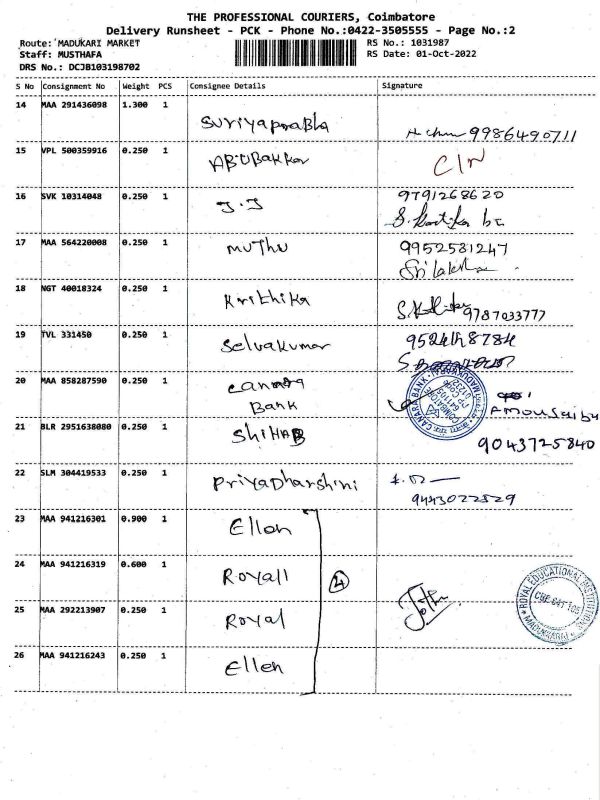 THE PROFESSIONAL COURIERS, Coimbatore
Delivery Runsheet - PCK - Phone No.:0422-3505555 - Page No.:2
Route: MADUKARI MARKET RS No.: 1031987
Staff: MUSTHAFA RS Date: 01-Oct-2022
DRS No.: DCJB103198702
S No Consignment No Weight PCS Consignee Details Signature
14 MAA 291436098 1.300 1
Suriyaprabha
9986490711
15 VPL 500359916 0.250 1 ABUBakkar
C/N
16 SVK 10314048 0.250 1 9791268620
J.J
17 MAA 564220008 0.250 1 muthu 9952581247
Srilakshm
18 NGT 40018324 0.250 1
Karithika 9787033777
19 TVL 331450 0.250 1
Selvakumar
20 MAA 858287590 0.250 1 canara
Bank
CANARA BANK
21 BLR 2951638080 0.250 1 SHIHAB 9043725840
22 SLM 304419533 0.250 1
PriyaDharshini
9443022529
23 MAA 941216301 0.900 1 Ellen
24 MAA 941216319 0.600 1
Royall 4
ROYAL EDUCATIONAL INSTITUTIONS
CBE 641 105
25 MAA 292213907 0.250 1
Royal
26 MAA 941216243 0.250 1
Ellen